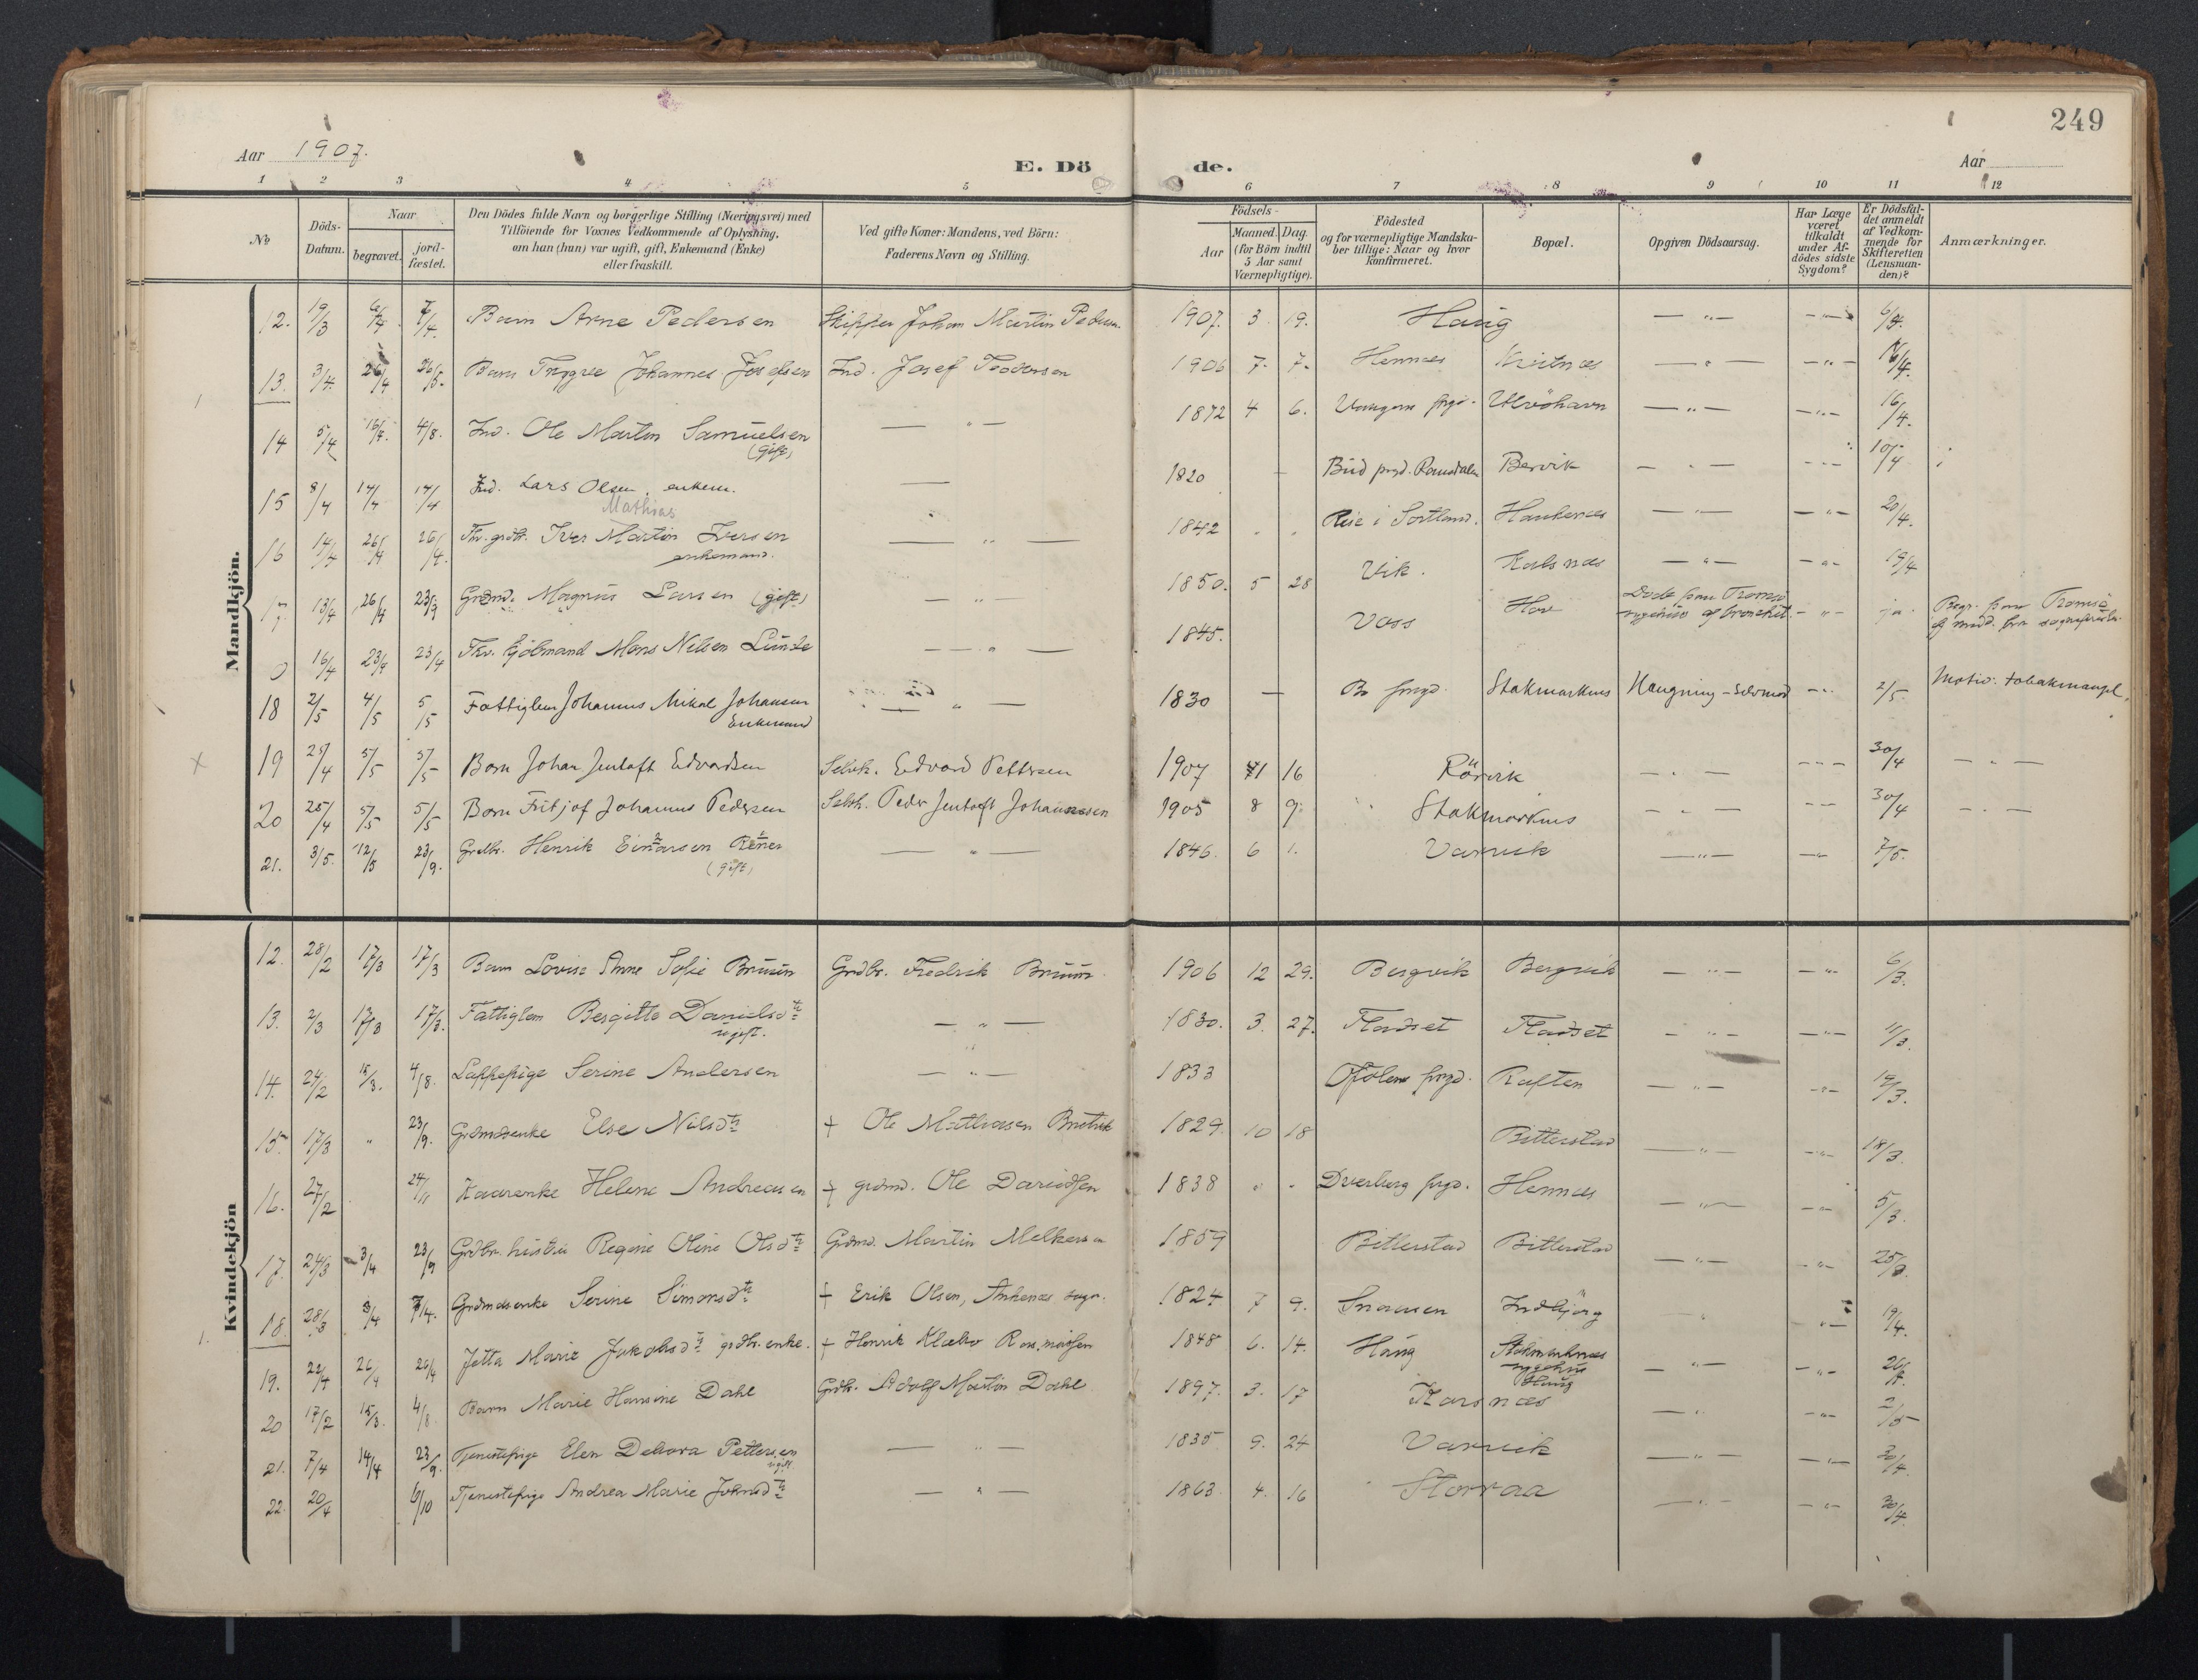 249
Aar 1907.
E. Dö de.
Aar
1 2 3 4 5 6 7 8 9 10 11 12
No
Döds-Datum.
Naar begravet. jordfæstet.
Den Dödes fulde Navn og borgerlige Stilling (Næringsvei) med
Tilföiende for Voxnes Vedkommende af Oplysning,
om han (hun) var ugift, gift, Enkemand (Enke)
eller fraskilt.
Ved gifte Koner: Mandens, ved Börn:
Faderens Navn og Stilling.
Födsels-
Aar Maaned. Dag.
(for Börn indtil
5 Aar samt
Værnepligtige).
Födested
og for værnepligtige Mandska-
ber tillige: Naar og hvor
Konfirmeret.
Bopæl.
Opgiven Dödsaarsag.
Har Læge
været
tilkaldt
under Af-
dödes sidste
Sygdom?
Er Dödsfal-
det anmeldt
af Vedkom-
mende for
Skifteretten
(Lensman-
den)?
Anmærkninger.
Mandkjön.
12. 19/3 6/4. 7/4. Barn Arne Pedersen Skipper Johan Martin Pedersen 1907. 3. 19. Haug — " — — " — 6/4.
13. 3/4 26/4 26/5. Barn Johannes Josefsen Ind. Josef 1906 7. 7. Hennes Kvitnes — " — — " — 16/4.
14 5/4 16/4. 4/8. Ind. Ole Martin Samuelsen — " — 1872 4 6. Ulvöhavn — " — — " — 16/4.
(gift)
15 8/4 14/4 14/4 Ind. Lars Olsen, enkem. — 1820 — Bud prgd. Romsdalen Bervik — " — — " — 10/4
Mathias
16 14/4 26/4 26/4. Iver Martin Iversen — " — 1842 " " Reie i Sortland. Haukenes — " — — " — 20/4.
enkemand.
17 13/4 26/4 23/9 Grdmd. Magnus Larsen (gift) — " — 1850. 5 28 Vik. Kalsnæs — " — — " — 19/4
0 16/4 23/4 23/4 Mons Nilsen Lunde — " — 1845. Voss Hov Döde paa Tromsö — " — ja. Begr. paa Tromsö
sygehus af bronchit.
18 2/5 4/5 5/5 Fattiglem Johannes Mikal Johansen — " — 1830 — Bö prgd. Stokmarknes Hængning - Selvmord — " 2/5. Motiv: tobakmangel.
Enkemand
19 25/4 5/5 5/5 Barn Johan Jentoft Edvardsen Selvk. Edvard Pettersen 1907 1 16 Rörvik — " — — " — 30/4 — " —
20 25/4 5/5 5/5 Barn Fritjof Johannes Pedersen Selvk. Peder Jentoft Johannessen 1905 8 9. Stokmarknes — " — — " — 30/4 — " —
21. 3/5. 12/5 23/9. Grdbr. Henrik Einarsen — " — 1846. 6 1. Varvik — " — — " — 7/5.
(gift)
Kvindekjön
12. 28/2 17/3 17/3 Barn Lovise Anne Sofie Bruun Grdbr. Fredrik Bruun. 1906 12 29. Bergvik Bergvik — " — — " — 6/3.
13. 2/3 17/3 17/3. Fattiglem Bergitte Danielsdtr — " — 1830. 3. 27. Fladset Fladset — " — — " — 11/3.
ugift.
14. 24/2 15/3. 4/8. Lappepige Serine Andersen — " — 1833 Ofoten prgd. Raften — " — — " — 19/3.
15 17/3 " 23/9. Grdmdsenke Else Nilsdtr † Ole Mathiasen 1829. 10 18 Bitterstad — " — — " — 18/3.
16. 27/2 24/11 Kaarenke Helene Andreasen † grdmd. Ole Davidsen 1838 " " Dverberg prgd. Hennes — " — — " — 5/3.
17. 24/3 3/4 23/9 Grdbr. hustru Regine Oline Olsdtr Grdmd. Martin Melkersen 1859 Bitterstad Bitterstad — " — — " — 25/3.
18. 28/3 3/4 7/4. Grdmdsenke Serine Simonsdtr † Erik Olsen, Ankenes sogn. 1824 7 9. Snarsen Indbjörg — " — — " — 19/4.
19. 22/4 26/4 26/4 Jetta Marie Jakobsdtr grdbr. enke. † Henrik Klæbo 1848 6. 14. Haug Stokmarknes — " — — " — 26/4.
sygehus
Haug
20 17/2 15/3. 4/8. Barn Marie Hansine Dahl Grdbr. Adolf Martin Dahl. 1897. 3. 17 Karsnæs — " — — " — 2/5
21. 7/4 14/4 23/9. Tjenestepige Elen Debora Pettersen — " — 1835 9. 24 Varvik — " — — " — 30/4.
ugift.
22. 20/4 6/10 Tjenestepige Andrea Marie Johnsdtr — " — 1863. 4. 16 Storraa — " — — " — 30/4.